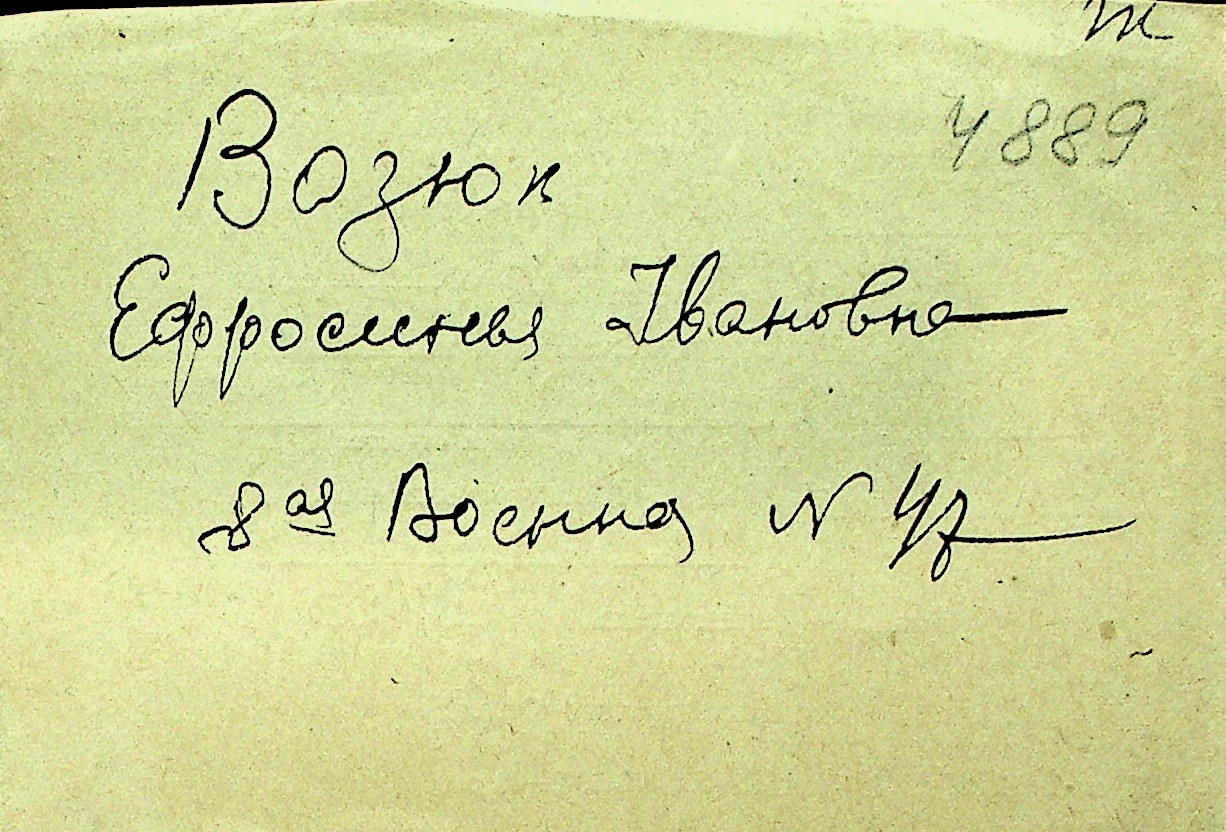 4889
Возюк
Ефросинья Ивановна
8ая Военная N 47